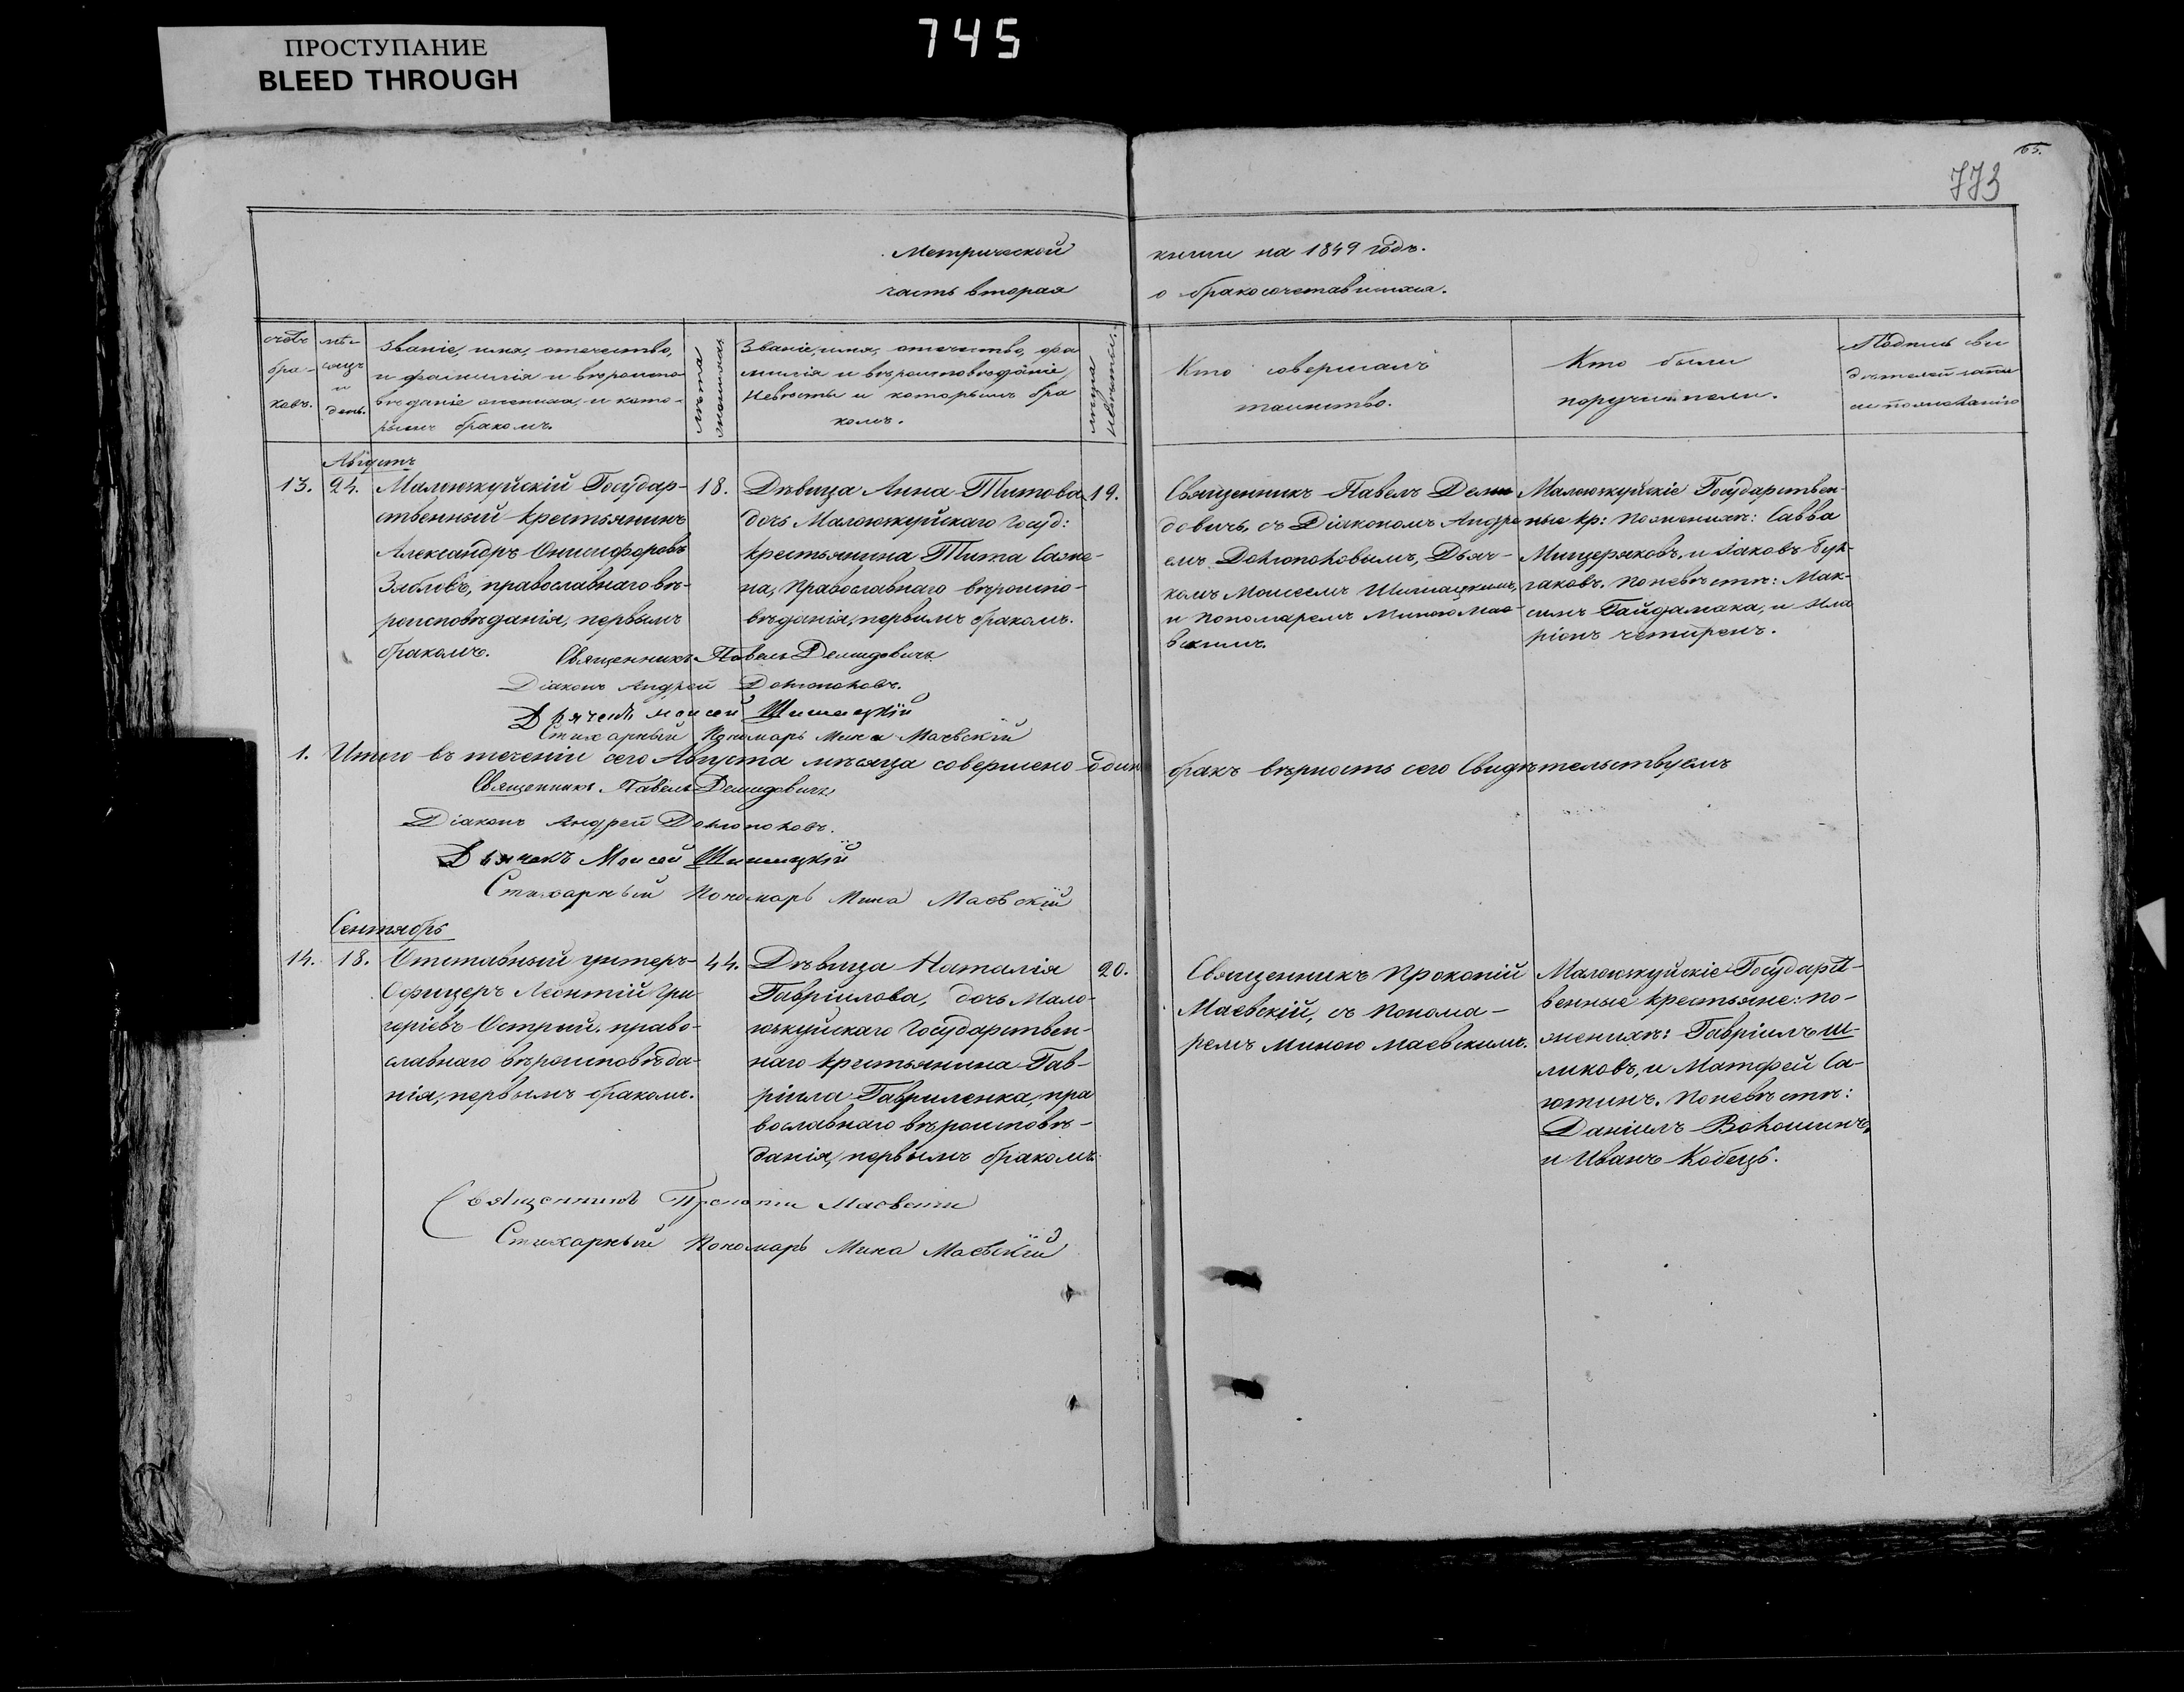 ПРОСТУПАНИЕ
BLEED THROUGH
745
65.
773
Метрической книги на 1849 годъ.
часть вторая о бракосочетавшихся.
счетъ бра-ковъ.
мѣ-сяцъ и день.
Званіе, имя, отечество,
и фамилія и вѣроиспо-
вѣданіе жениха, и кото-
рымъ бракомъ.
лѣта жениха
Званіе, имя, отечество, фа
милія и вѣроисповѣданіе
Невѣсты и которымъ бра
комъ.
лѣта невѣсты.
Кто совершалъ
таинство.
Кто были
поручители.
Подпись сви
дѣтелей записи
по желанію
Августъ
13. 24. Малоюжуйскій Государ-
ственный крестьянинъ
Александръ Онисифоровъ
Зябловъ, православнаго вѣ-
роисповѣданія, первымъ
бракомъ.
18.
Дѣвица Анна Титова
дочь Малоюжуйскаго Госуд:
крестьянина Тита Сазне-
на, Православнаго вѣроиспо-
вѣданія, первымъ бракомъ.
19.
Священникъ Павелъ Деми
довичь, съ Діакономъ Андре
емъ Дохтоповымъ, Дьяч-
комъ Моисеемъ Шишацкимъ,
и Пономаремъ Миною Мае
вскимъ.
Малоюжуйскіе Государствен
ные кр: По женихѣ: Савва
Мищеряковъ, и Іаковъ
По невѣстѣ: Мак-
симъ Гайдамака, и Ила
ріонъ Четиренъ.
Священникъ Павелъ Демидовичь
Діаконъ Андрей
Дьячекъ Моисей Шишацкій
Стихарный Пономарь Мина Маевскій
1. Итого въ теченіи сего Августа мѣсяца совершено одинъ бракъ вѣрность сего Свидѣтельствуемъ
Священникъ Павелъ Демидовичь
Діаконъ Андрей
Дьячекъ Моисей Шишацкій
Стихарный Пономарь Мина Маевскій
Сентябрь
14. 18. Отставный унтеръ-
Офицеръ Леонтій Гри
горіевъ Острый, право-
славнаго вѣроисповѣда-
нія, первымъ бракомъ.
44.
Дѣвица Наталія
Гавріилова, дочь Мало-
южуйскаго Государствен-
наго крестьянина Гав-
ріила Гавриленка, пра
вославнаго вѣроисповѣ-
данія, первымъ бракомъ
20.
Священникъ Прокопій
Маевскій, съ Понома-
ремъ Миною Маевскимъ.
Малоюжуйскіе Государст-
венные крестьяне: по-
женихѣ: Гавріилъ Ш-
ликовъ, и Матфей Са-
ютинъ. По невѣстѣ:
Даніилъ Волошинъ,
и Иванъ Кобецъ.
Священникъ Прокопій Маевскій
Стихарный Пономарь Мина Маевскій